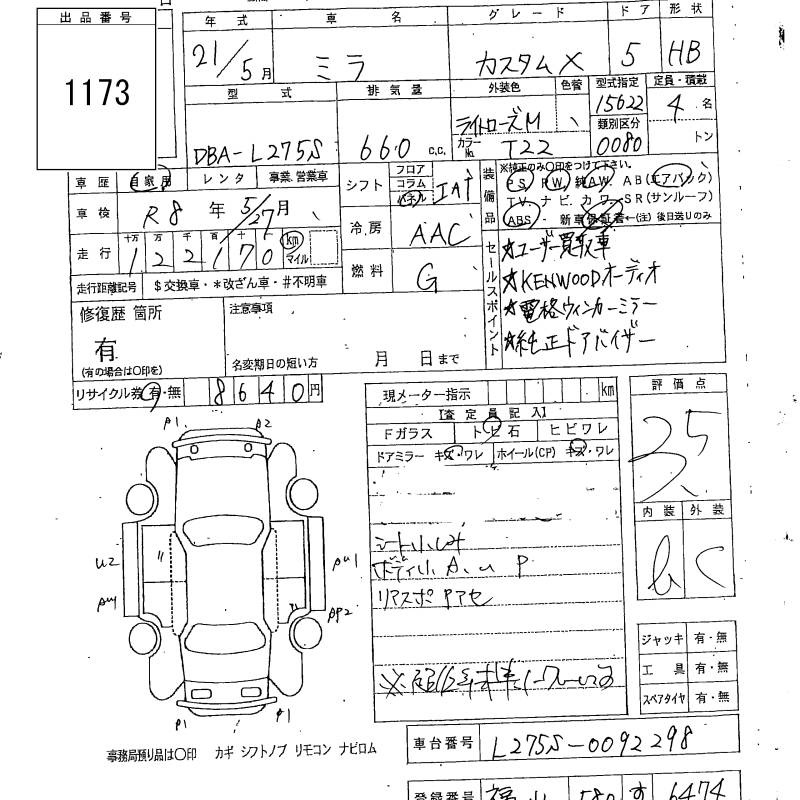 出品番号
1173
年式 車名 グレード ドア 形状
21/5月 ミラ カスタムX 5 HB
型式 排気量 外装色 色替 型式指定 定員・積載
DBA-L275S 660 c.c. ライトローズM 15622 4名
カラーNo. T22 類別区分 0080 トン
車歴 自家用 レンタ 事業.営業車
車検 R8年5/27月
走行 十万 万 千 百 十 一 km マイル
122170
走行距離記号 $交換車・*改ざん車・#不明車
シフト フロア コラム パネル IAT
冷房 AAC
燃料 G
装備品 ※純正のみ〇印をつけて下さい。
PS PW 純AW AB(エアバック)
TV ナビ カワー SR(サンルーフ)
ABS・新車保証書←(注)後日送りのみ
セールスポイント
★ユーザー買取車
★KENWOODオーディオ
★電格ウィンカーミラー
★純正ドアバイザー
修復歴 箇所 注意事項
有
(有の場合は〇印を) 名変期日の短い方 月 日まで
リサイクル券 有・無 8640円
現メーター指示 km
【査定員記入】
Fガラス トビ石 ヒビワレ
ドアミラー キズ・ワレ ホイール(CP) キズ・ワレ
シート小シミ
ボディ小A.U P
リアスポPアセ
評価点
3.5
内装 外装
b C
A1 A2
U2 AU1
AU1 AP2
P1 A1
ジャッキ 有・無
工具 有・無
スペアタイヤ 有・無
事務局預り品は〇印 カギ シフトノブ リモコン ナビロム
車台番号 L275S-0092298
登録番号 福山 580 す 6474